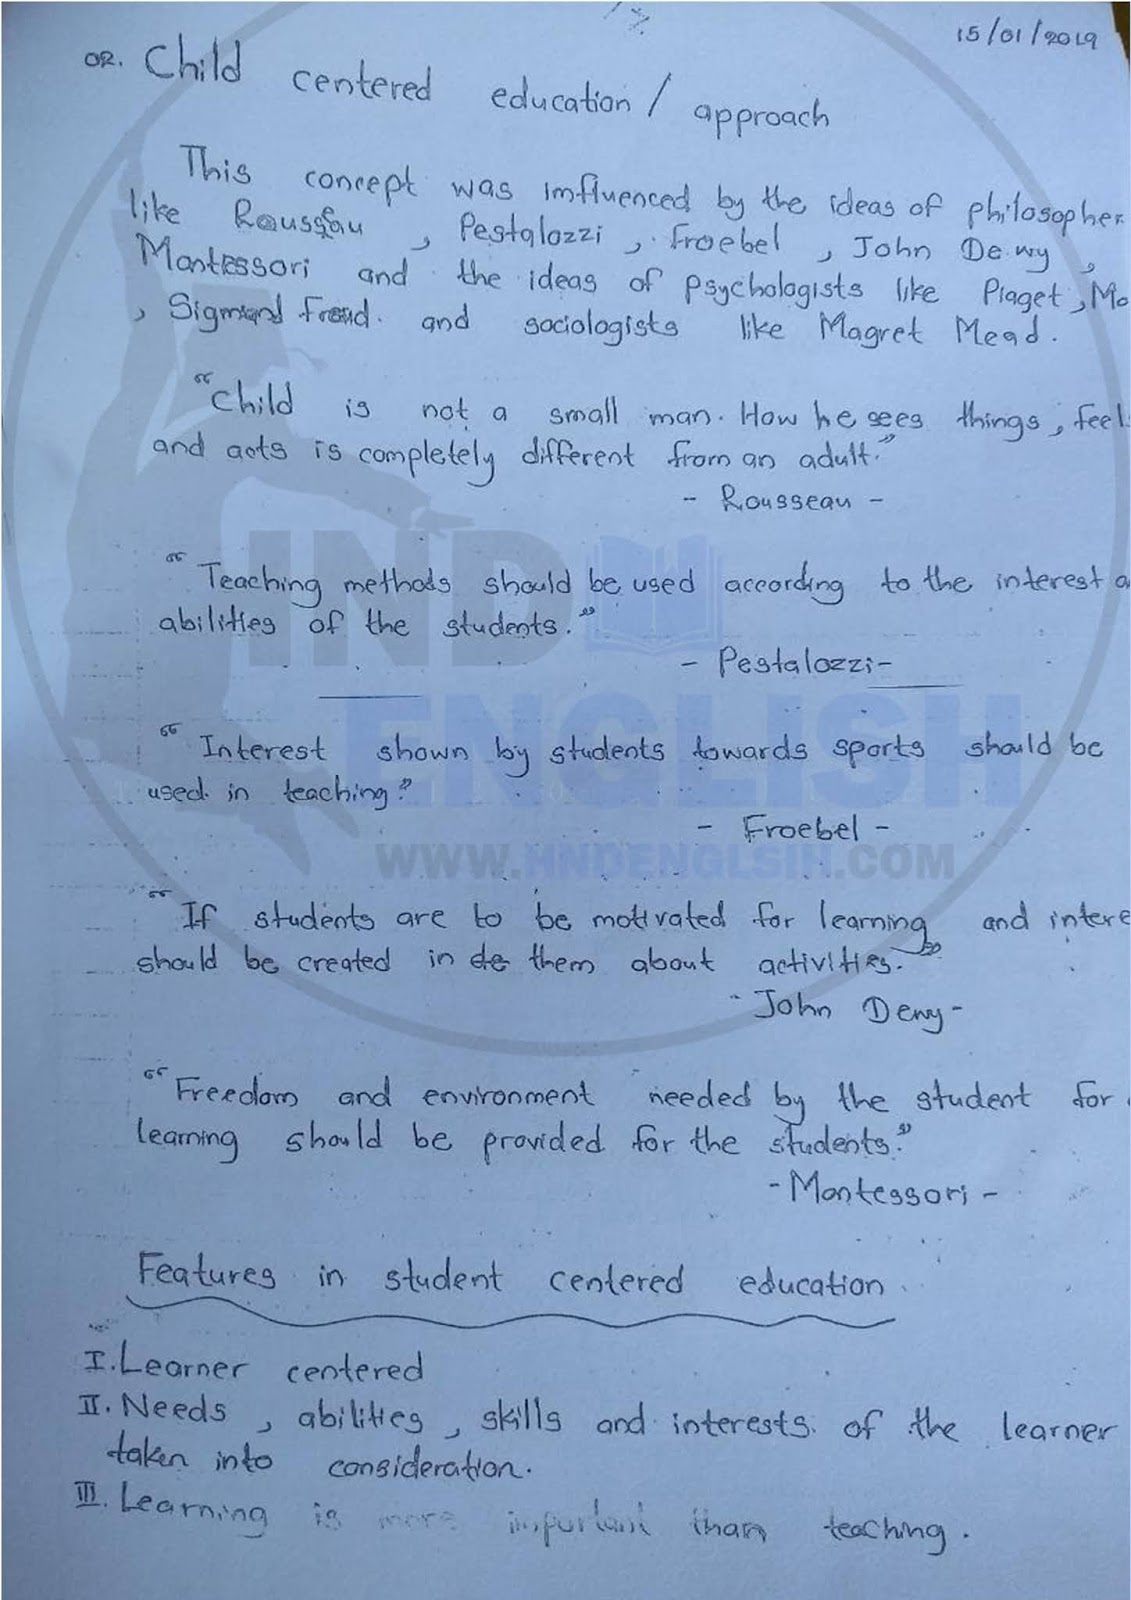 15/01/2019
02. Child centered education / approach
This concept was imfluenced by the ideas of philosopher
like Rousseau , Pestalozzi , Froebel , John Dewy ,
Montessori and the ideas of psychologists like Piaget , Mo
, Sigmund Freud. and sociologists like Magret Mead.
"Child is not a small man. How he sees things, feel
and acts is completely different from an adult."
- Rousseau -
"Teaching methods should be used according to the interest a
abilities of the students."
- Pestalozzi -
"Interest shown by students towards sports should be
used in teaching"
- Froebel -
"If students are to be motivated for learning and intere
should be created in them about activities."
- John Dewy -
"Freedom and environment needed by the student for
learning should be provided for the students."
- Montessori -
Features in student centered education.
I. Learner centered
II. Needs , abilities , skills and interests of the learner
taken into consideration.
III. Learning is more important than teaching.
IND
ENGLISH
WWW.HNDENGLSIH.COM